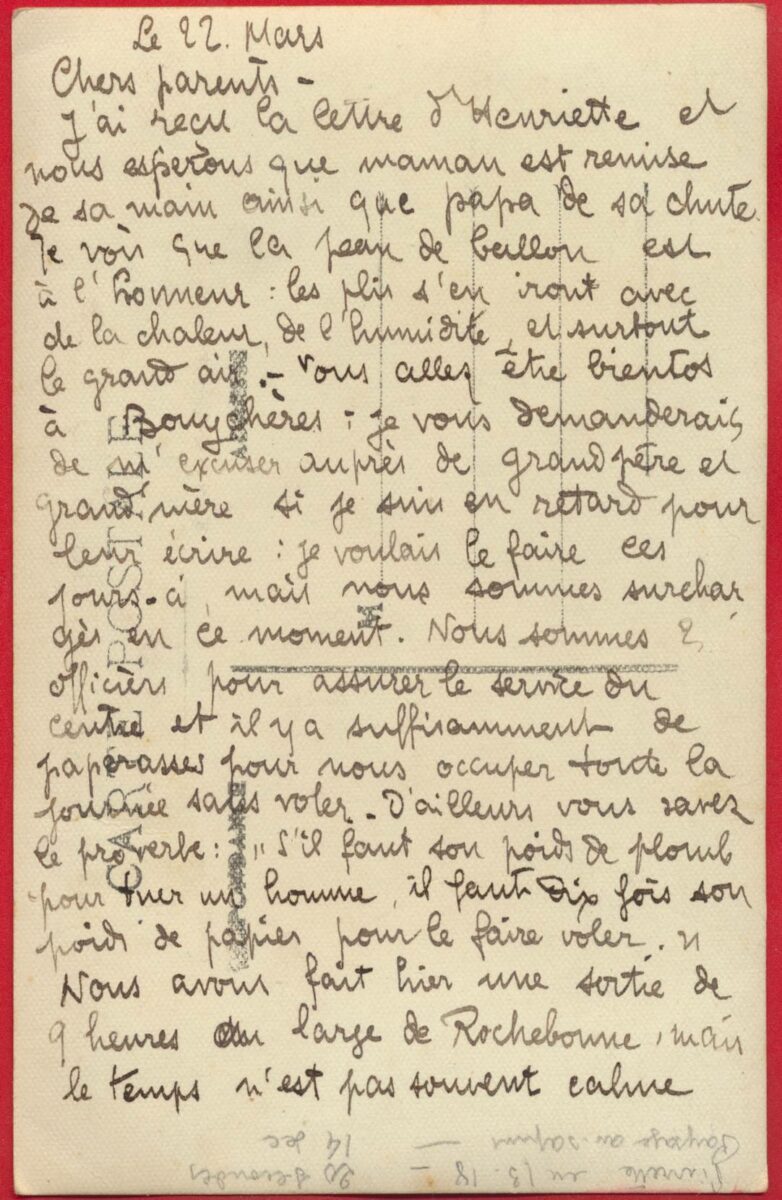 Le 22. Mars
Chers parents -
J'ai reçu la lettre d'Henriette et
nous espérons que maman est remise
de sa main ainsi que papa de sa chute.
Je vois que la peau de ballon est
à l'honneur : les plis s'en iront avec
de la chaleur, de l'humidité, et surtout
le grand air. - Vous allez être bientos
à : je vous demanderais
de m'excuser auprès de grandpère et
grand'mère si je suis en retard pour
leur écrire : je voulais le faire ces
jours-ci, mais nous sommes surchar
gés en ce moment. Nous sommes 2
officiers pour assurer le service du
centre et il y a suffisamment de
paperasses pour nous occuper toute la
journée sans voler. D'ailleurs vous savez
le proverbe : "S'il faut son poids de plomb
pour tuer un homme, il faut dix fois son
poids de papier pour le faire voler."
Nous avons fait hier une sortie de
9 heures au large de Rochebonne, mais
le temps n'est pas souvent calme
CARTE POSTALE
20 secondes
14 dec